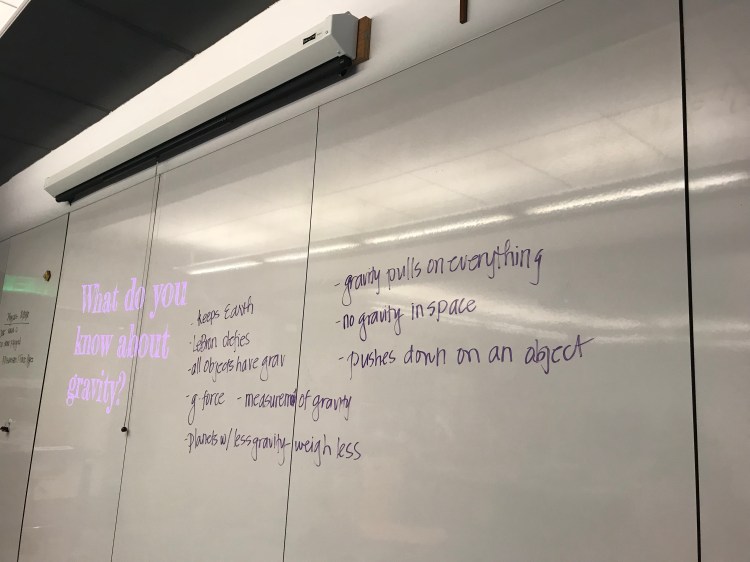 What do you
know about
gravity?
- keeps Earth
- LeBron defies
- all objects have grav
- g-force - measurement of gravity
- planets w/ less gravity - weigh less
- gravity pulls on everything
- no gravity in space
- pushes down on an object